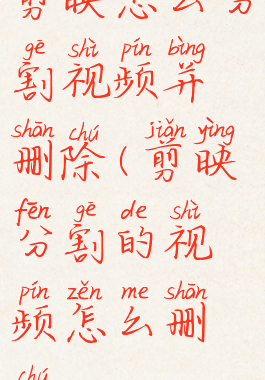 剪映怎么分
gē shì pín bìng
割视频并
shān chú jiǎn yìng
删除(剪映
fēn gē de shì
分割的视
pín zěn me shān
频怎么删
chú